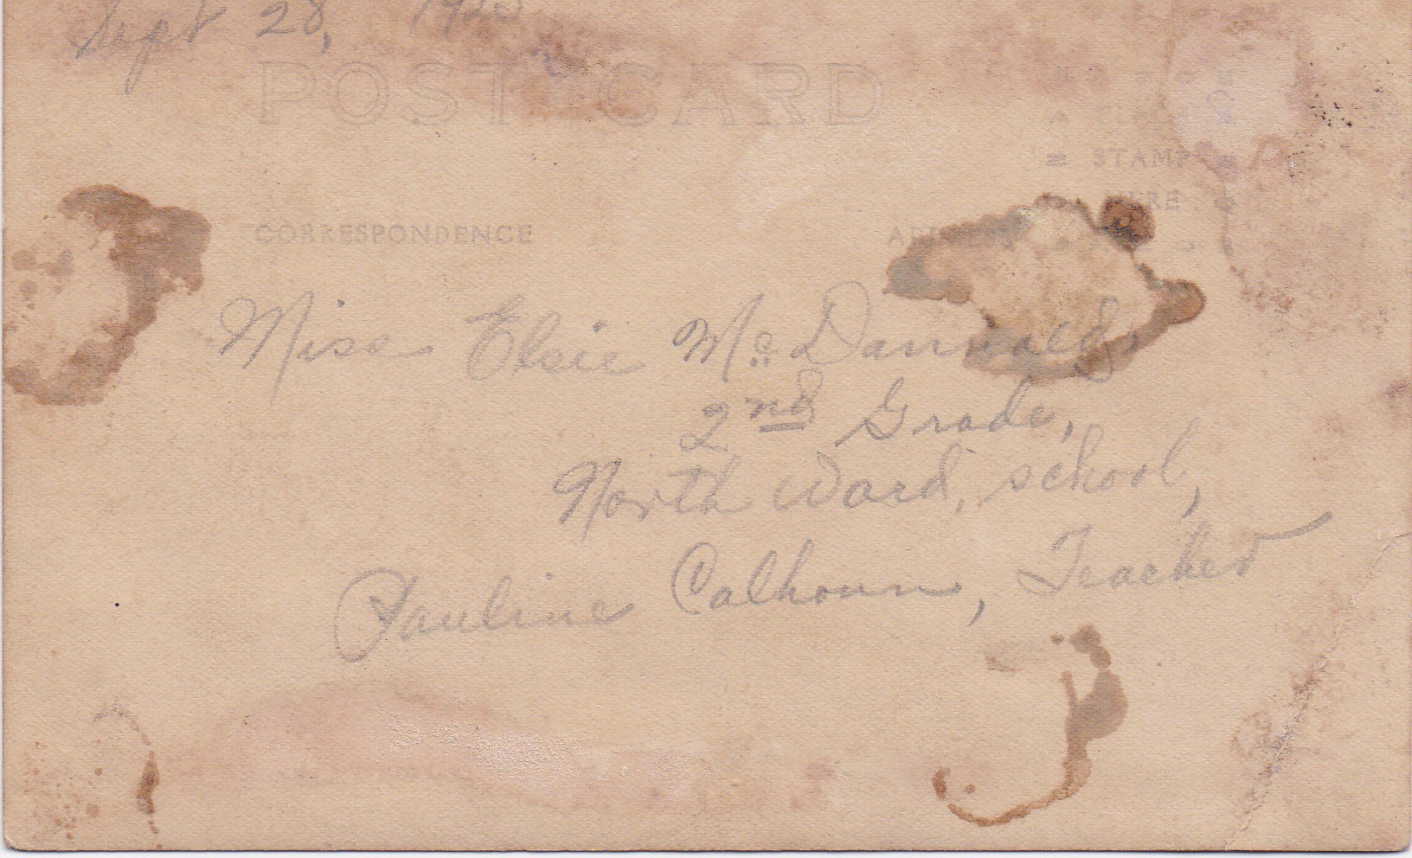 Sept 28,
POST CARD
STAMP
CORRESPONDENCE
Miss Elsie Mc Dannald,
2nd Grade,
North Ward, school,
Pauline Calhoun, Teacher